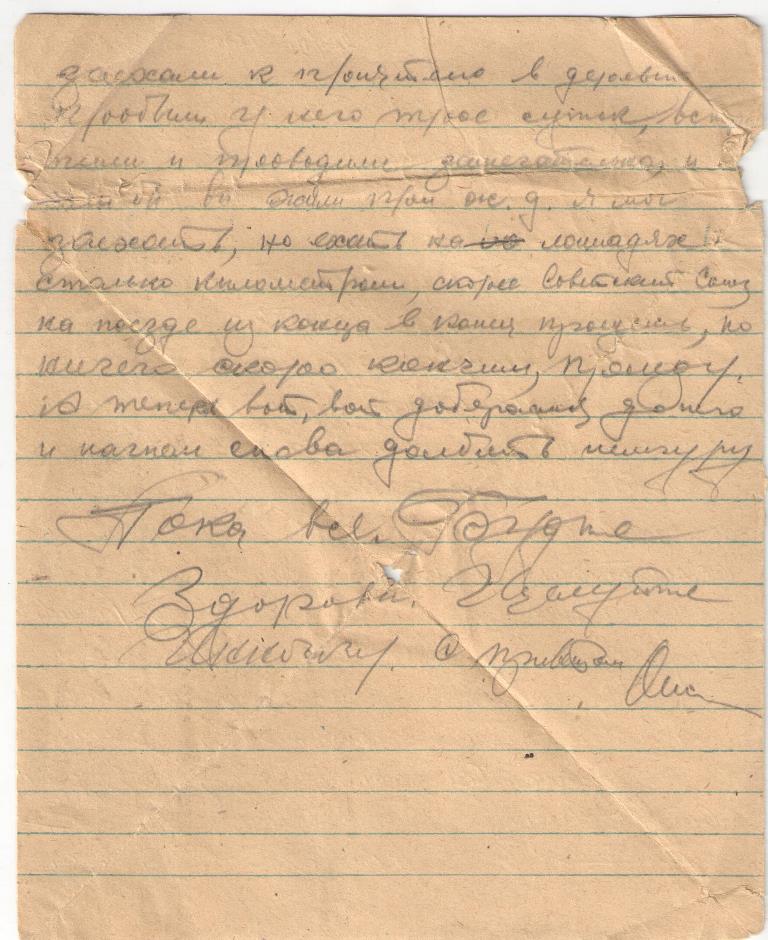 заехали к приятелю в деревню
Пробыли у него трое суток,
и проводили замечательно, и
бы жили при ж. д. я мог
заехать, но ехать на лошадях
столько километров, скорее Советский Союз
на поезде из конца в конец проедешь, но
ничего скоро кончим, приеду.
А теперь вот, вот доберемся до него
и начнем снова долбить
Пока все. Будте
Здоровы. Целуйте
С приветом